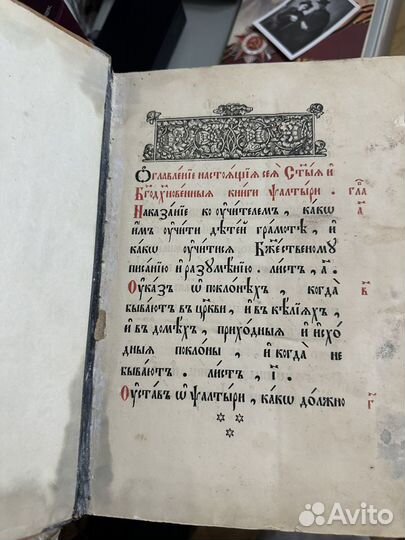 Ѻглавле́нїе настоѧ́щїѧ сеѧ̀ Ст҃ы́ѧ и҆
Бг҃одх҃нове́нныѧ кни́ги ѱалты́ри. гла
Наказа́нїе ко ᲂу҆чи́телемъ, ка́кѡ а҃
и҆̀мъ ᲂу҆чи́ти дѣте́й гра́мотѣ, и҆
ка́кѡ ᲂу҆чи́тисѧ Бж҃е́ственому
писа́нїю и҆ разꙋмѣ́нїю. ли́стъ, а҃.
Оу҆ка́зъ ѡ҆ покло́нѣхъ, когда̀ в҃
быва́ютъ въ цр҃кви, и҆ въ ке́лїѧхъ,
и҆ въ домѣ́хъ, прихо́дныѧ и҆ и҆схо́
дныѧ покло́ны, и҆ когда̀ не
быва́ютъ. ли́стъ, і҃.
Оу҆ста́въ ѡ҆ ѱалты́ри, ка́кѡ до́лжно г҃
Avito